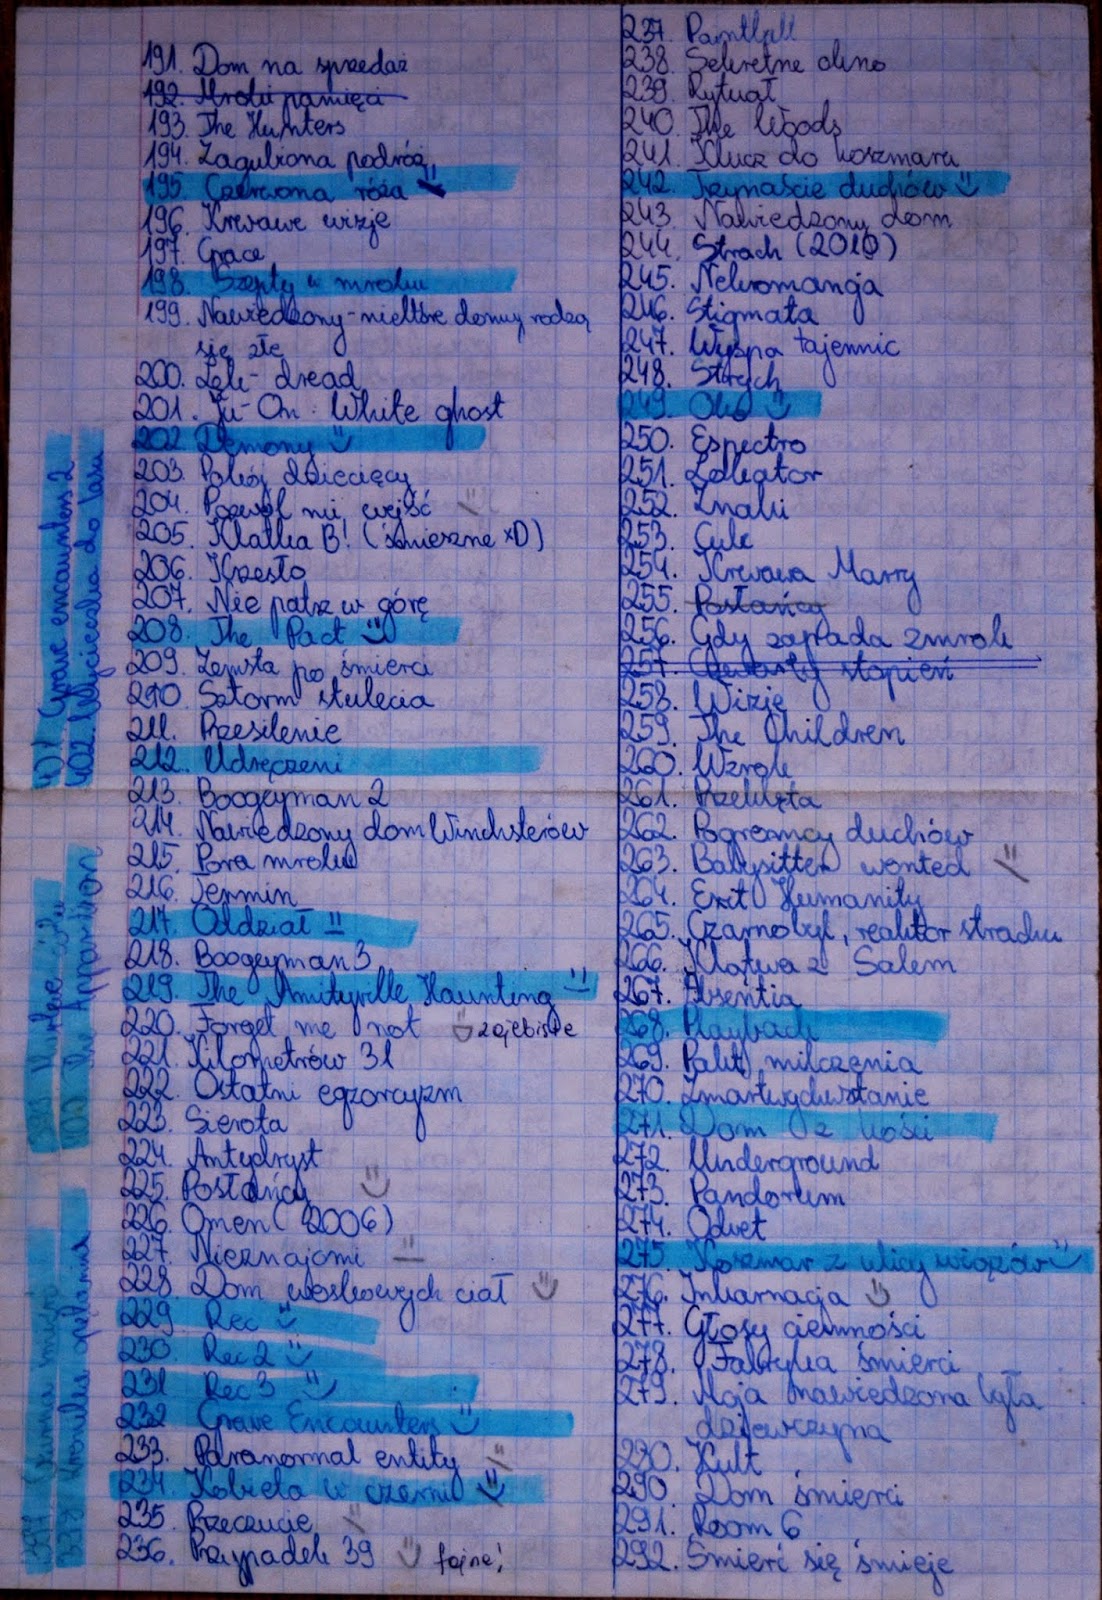 191. Dom na sprzedaż
192. Mroki pamięci
193. The Hunters
194. Zagubiona podróż
195. Czerwona róża
196. Krwawe wizje
197. Grace
198. Szepty w mroku
199. Nawiedzony - niektóre domy rodzą
się złe
200. Lęk - dread
201. Ju-On: White ghost
202. Demony
203. Pokój dziecięcy
204. Pozwól mi wejść
205. Klatka B! (śmieszne xD)
206. Krzesło
207. Nie patrz w górę
208. The Pact
209. Zemsta po śmierci
210. Sztorm stulecia
211. Przesilenie
212. Udręczeni
213. Boogeyman 2
214. Nawiedzony dom Winchesterów
215. Pora mroku
216. Termin
217. Oddział
218. Boogeyman 3
219. The Amityville Haunting
220. Forget me not zajebiste
221. Kilometrów 31
222. Ostatni egzorcyzm
223. Sierota
224. Antychryst
225. Posłańcy
226. Omen (2006)
227. Nieznajomi
228. Dom woskowych ciał
229 Rec
230. Rec 2
231 Rec 3
232 Grave Encounters
233. Paranormal entity
234. Kobieta w czerni
235. Przeczucie
236. Przypadek 39 fajne!
237. Paintball
238. Sekretne okno
239. Rytuał
240. The Woods
241. Klucz do koszmaru
242. Trzynaście duchów
243. Nawiedzony dom
244. Strach (2010)
245. Nekromancja
246. Stigmata
247. Wyspa tajemnic
248. Strych
249. Oko
250. Espectro
251. Lokator
252. Znaki
253. Cube
254. Krwawa Marry
255. Posłańcy
256. Gdy zapada zmrok
257. Czwarty stopień
258. Wizje
259. The Children
260. Wzrok
261. Przeklęta
262. Pogromcy duchów
263. Babysitter wonted
264. Exit Humanity
265. Czarnobyl, reaktor strachu
266. Klątwa z Salem
267. Absentia
268. Playback
269. Pakt milczenia
270. Zmartwychwstanie
271. Dom z kości
272. Underground
273. Pandorum
274. Odwet
275. Koszmar z ulicy wiązów
276. Inkarnacja
277. Głosy ciemności
278. Fabryka śmierci
279. Moja nawiedzona była
dziewczyna
280. Kult
290. Dom śmierci
291. Room 6
292. Śmierć się śmieje
401 Grave encounters 2
402. Wycieczka do lasu
The Apparition